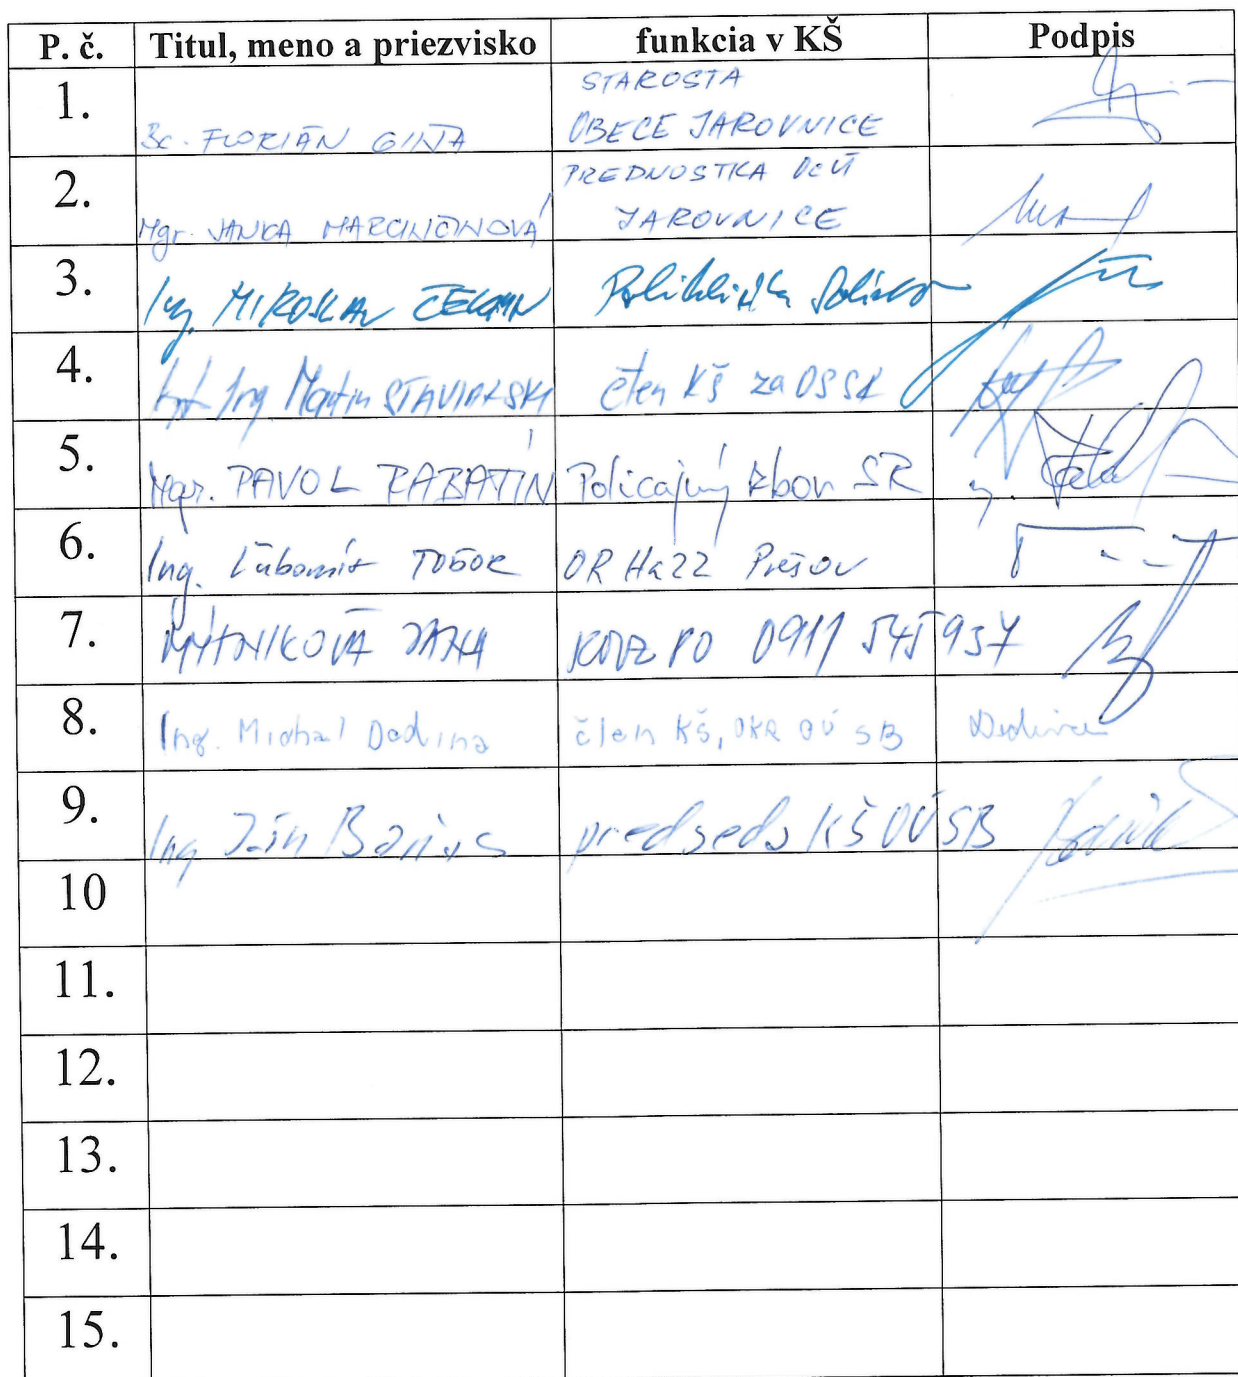 P. č. Titul, meno a priezvisko funkcia v KŠ Podpis
1. Bc. FLORIÁN GIŇA STAROSTA
OBECE JAROVNICE
2. Mgr. JANKA MARCINČINOVÁ PREDNOSTKA OcÚ
JAROVNICE
3. Ing. MIROSLAV Poliklinika
4. Ing Martin STAVIARSKY člen KŠ za OSSR
5. Mgr. PAVOL RABATÍN Policajný zbor SR
6. Ing. Ľubomír OR HaZZ Prešov
7. MÝTNIKOVÁ JANA PO 0911 545 937
8. Ing. Michal Dedina člen KŠ, OKR OÚ SB
9. Ing Ján predseda KŠ OÚ SB
10
11.
12.
13.
14.
15.